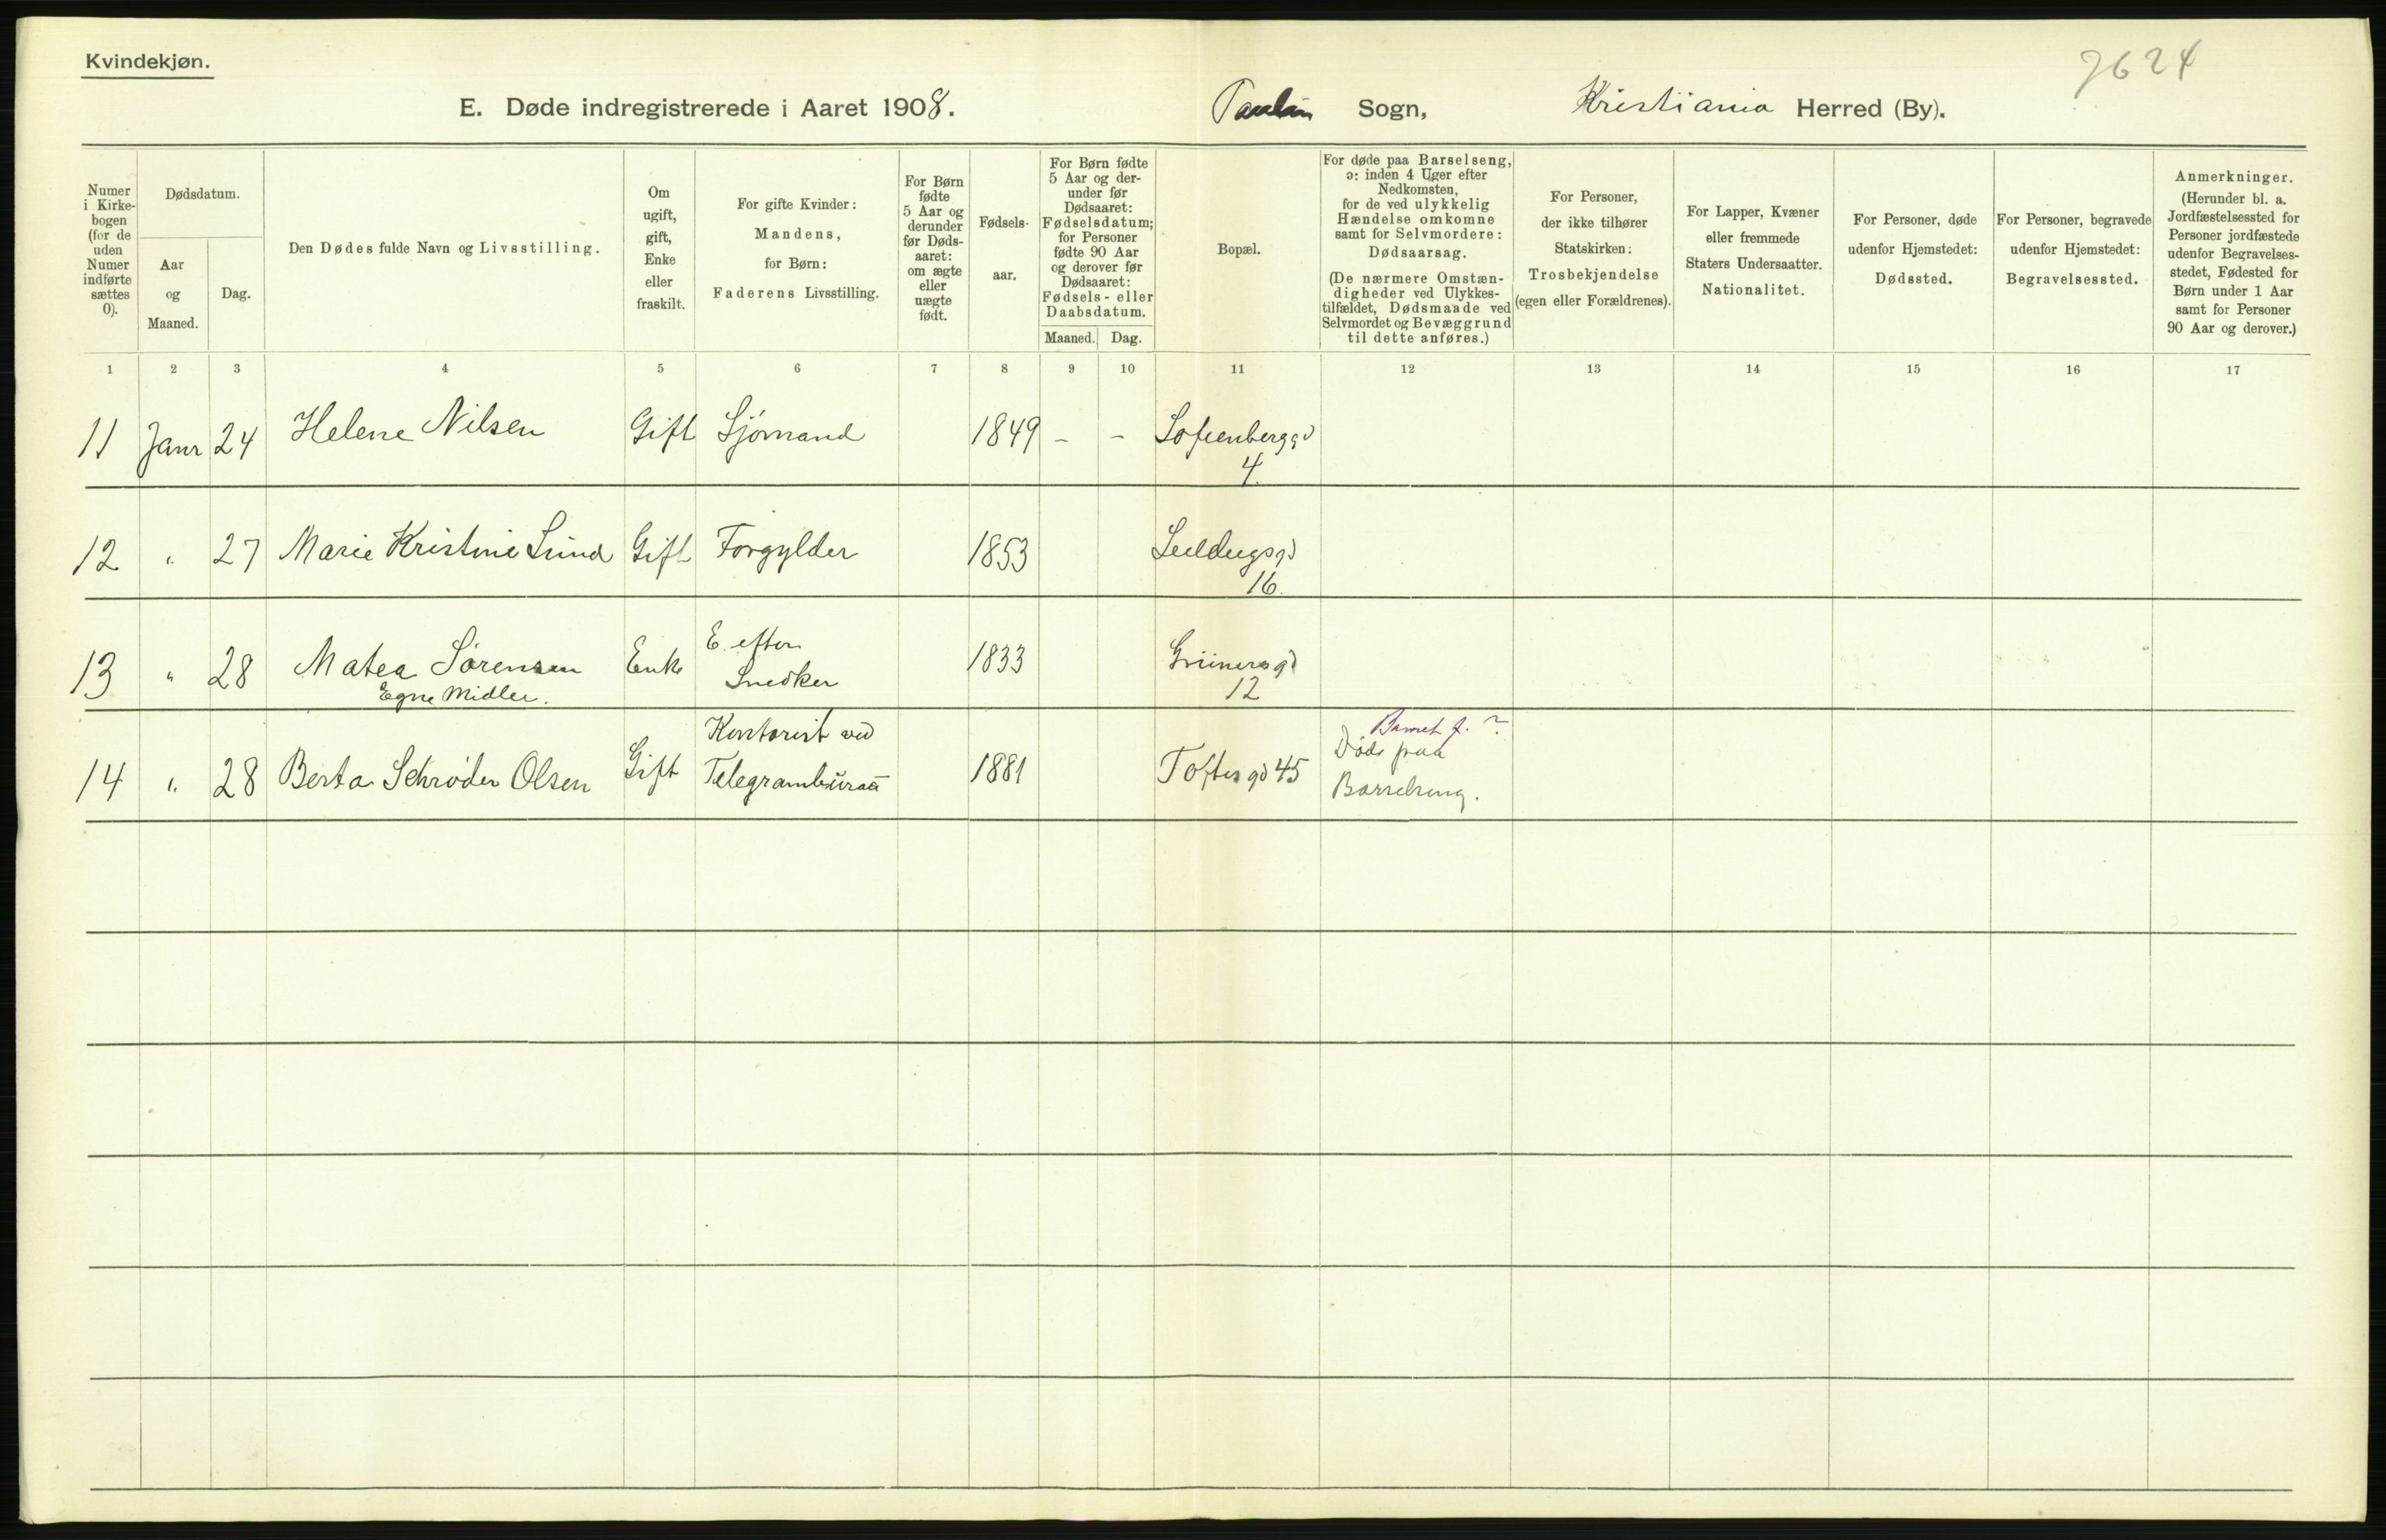 Kvindekjøn.
7624
E. Døde indregistrerede i Aaret 1908. Sogn, Kristiania Herred (By).
Numer i Kirke-bogen (for de uden Numer indførte sættes 0).
Dødsdatum.
Aar og Maaned.
Dag.
Den Dødes fulde Navn og Livsstilling.
Om ugift, gift, Enke eller fraskilt.
For gifte Kvinder: Mandens, for Børn: Faderens Livsstilling.
For Børn fødte 5 Aar og derunder før Døds-aaret: om ægte eller uægte født.
Fødsels-aar.
For Børn fødte 5 Aar og der-under før Dødsaaret: Fødselsdatum; for Personer fødte 90 Aar og derover før Dødsaaret: Fødsels- eller Daabsdatum.
Maaned. Dag.
Bopæl.
For døde paa Barselseng, ɔ: inden 4 Uger efter Nedkomsten, for de ved ulykkelig Hændelse omkomne samt for Selvmordere: Dødsaarsag. (De nærmere Omstæn-digheder ved Ulykkes-tilfældet, Dødsmaade ved Selvmordet og Bevæggrund til dette anføres.)
For Personer, der ikke tilhører Statskirken: Trosbekjendelse (egen eller Forældrenes).
For Lapper, Kvæner eller fremmede Staters Undersaatter. Nationalitet.
For Personer, døde udenfor Hjemstedet: Dødssted.
For Personer, begravede udenfor Hjemstedet: Begravelsessted.
Anmerkninger. (Herunder bl. a. Jordfæstelsessted for Personer jordfæstede udenfor Begravelses-stedet, Fødested for Børn under 1 Aar samt for Personer 90 Aar og derover.)
1 2 3 4 5 6 7 8 9 10 11 12 13 14 15 16 17
11 Janr 24 Helene Nilsen Gift Sjømand 1849 - - Sofienberggd
4.
12 " 27 Marie Kristine Lund Gift Forgylder 1853
16.
13 " 28 Matea Sørensen Enke E. efter 1833 Grünersgd
Egne Midler. Snedker 12
14 " 28 Berta Schrøder Olsen Gift Kontorist ved 1881 Toftesgd 45 Barnet f. ?
Telegrambureau Død paa
Barselseng.